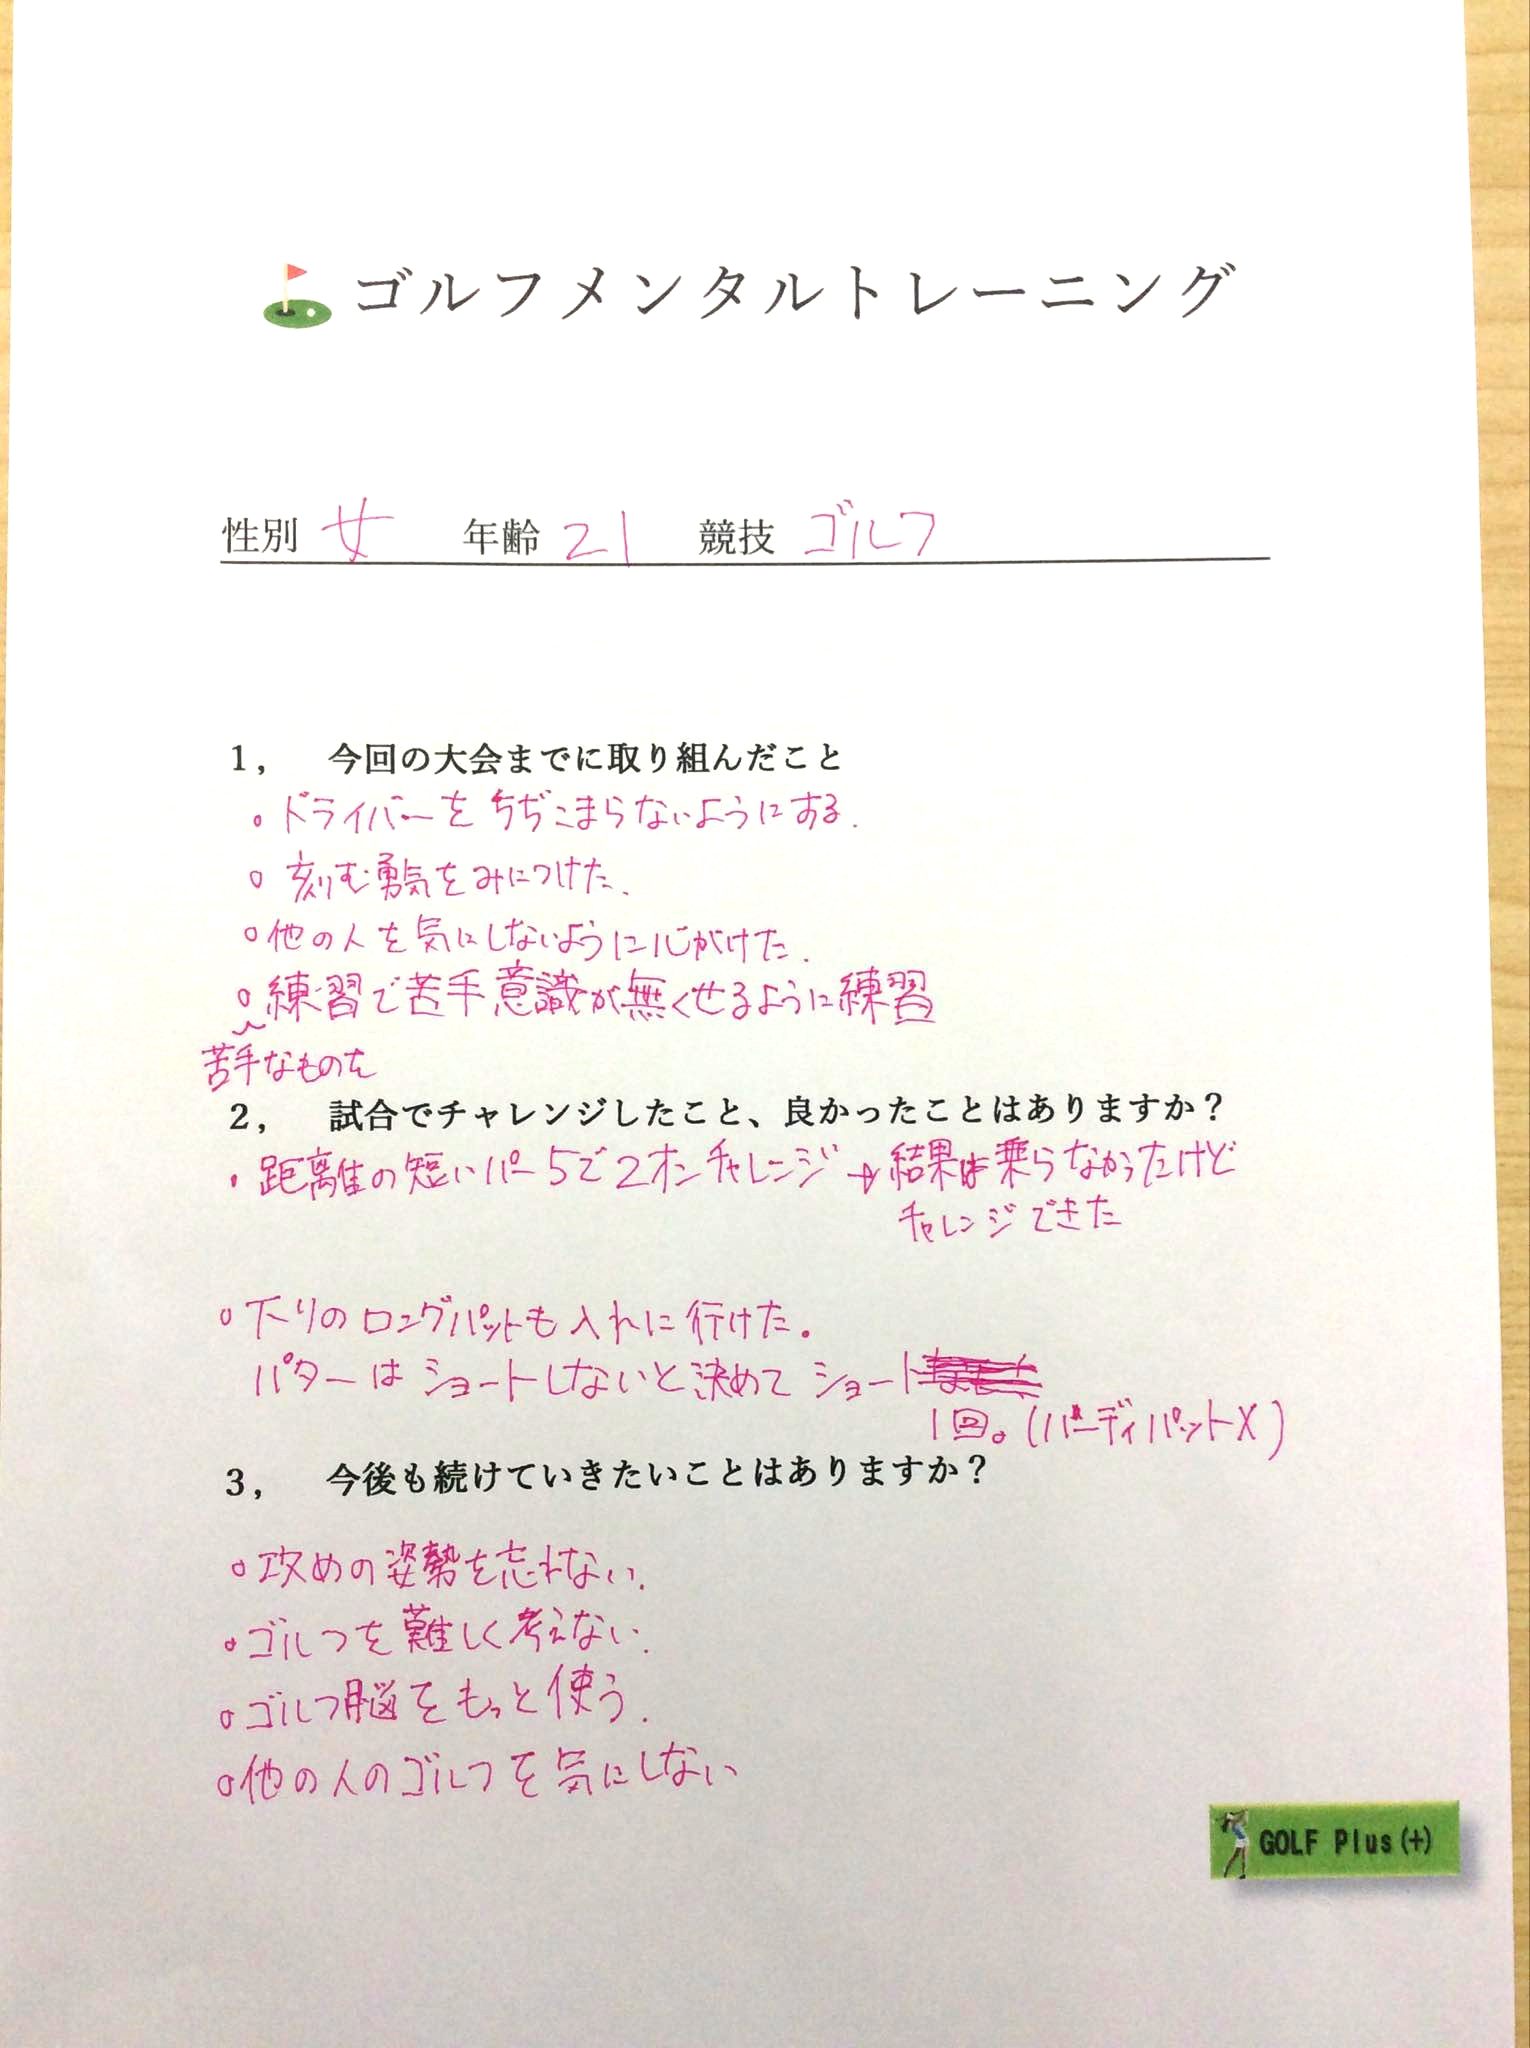 ゴルフメンタルトレーニング
性別 女 年齢 21 競技 ゴルフ
1, 今回の大会までに取り組んだこと
。ドライバーをちぢこまらないようにする.
。刻む勇気をみにつけた.
。他の人を気にしないように心がけた.
。練習で苦手意識が無くせるように練習
苦手なものを
2, 試合でチャレンジしたこと、良かったことはありますか?
・距離の短いパー5で2オンチャレンジ→結果は乗らなかったけど
チャレンジできた
。下りのロングパットも入れに行けた。
パターはショートしないと決めてショート
1回。(バーディパットX)
3, 今後も続けていきたいことはありますか?
。攻めの姿勢を忘れない.
。ゴルフを難しく考えない.
。ゴルフ脳をもっと使う.
。他の人のゴルフを気にしない
GOLF Plus(+)